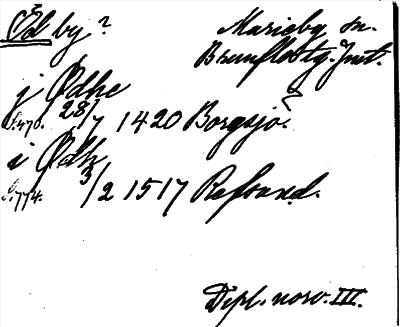 Öd by? Marieby sn.
Brunflo tg. Jmt.
j Ødhe
S.470. 28/7 1420 Borgsjö?
i Ødh
S.774. 3/2 1517 Refsund.
Dipl. norv. III.